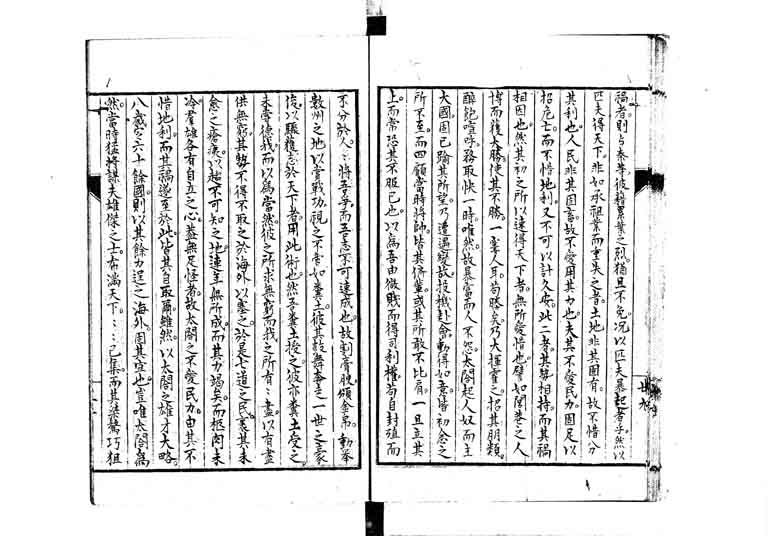 禍者。則與秦華彼藉累葉之烈。猶且不免。況以匹夫暴起者乎。然以
匹夫得天下。非如承祖業而重失之者。土地非其固有。故不惜分
其利也。人民非其固畜。故不愛用其力也。夫其不愛民力。固足以
招危亡。而不惜地利。又不可以計久安。此二者其勢相持。而其禍
相因也。然其初之所以速得天下者。無所愛惜也。譬如閭巷之人
博而獲大勝。使其不勝。一窶人耳。苟勝矣。乃大揮霍之。招其朋類。
醉飽喧呼。務取快一時。唯然。故暴富而人不怨。太閤起人奴而主
大國。固已踰其所望。乃遭遇變故。投機赴會。動得如意。皆初念之
所不至。而四顧當時將帥。皆其儕輩。或其所敢不比肩。一旦立其
上。而常恐其不服己也。以為吾由微賤而得司利權。苟自封殖而
不分於人。將吾爭。而吾志不可達成也。故割膏腴。頒金帛。動舉
數州之地。以賞戰功。視之不啻如糞土。彼其鼓舞奔走一世之豪
俊。以驅獲志於天下者。用此術也。然吾糞土授之。彼亦糞土受之。
未嘗德我而以為當然。彼之所求無窮。而我之所有盡。以有盡
供無窮。其勢不得不取之於海外以塞之。於是七道之民。裹其未
愈之瘡痍。以趨不可知之地。連年無所成。而其力竭矣。而極肉未
冷。羣雄各有自立之心。蓋無足怪者。故太閤之不愛民力。由其不
惜地利。而其禍遂至於此。皆其自取爾。雖然。以太閤之雄才大略。
八歲定六十餘國。則以其餘力逞之海外。固其宜也。豈唯太閤為
然。當時猛將謀夫雄傑之士。布滿天下。已集。而其桀驁巧狙